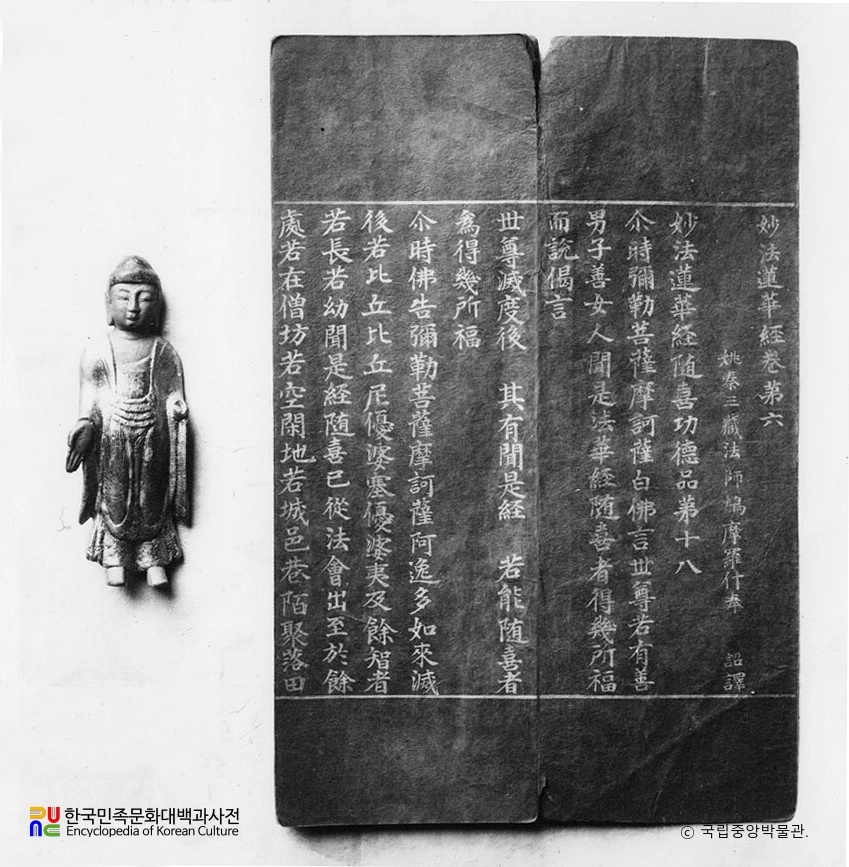 妙法蓮華經卷第六
姚秦三藏法師鳩摩羅什奉 詔譯
妙法蓮華經随喜功德品第十八
尒時彌勒菩薩摩訶薩白佛言世尊若有善
男子善女人聞是法華經随喜者得幾所福
而說偈言
世尊滅度後 其有聞是經 若能随喜者
為得幾所福
尒時佛告彌勒菩薩摩訶薩阿逸多如來滅
後若比丘比丘尼優婆塞優婆夷及餘智者
若長若幼聞是經随喜已從法會出至於餘
處若在僧坊若空閑地若城邑巷陌聚落田
한국민족문화대백과사전
Encyclopedia of Korean Culture
© 국립중앙박물관.